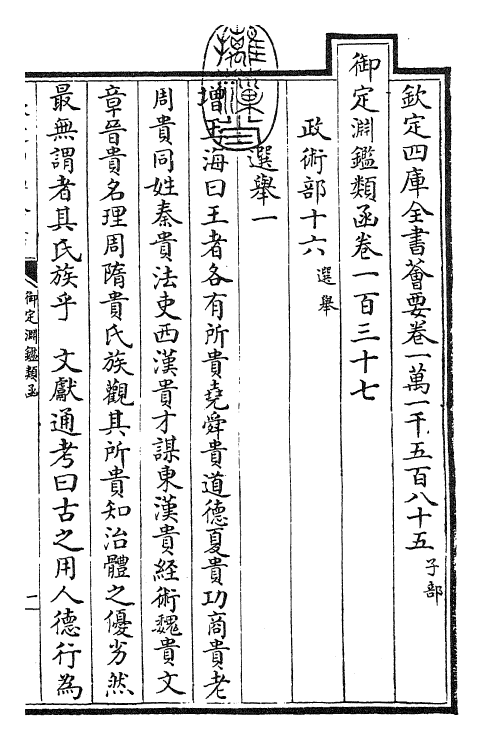 欽定四庫全書薈要卷一萬一千五百八十五 子部
御定淵鑑類函卷一百三十七
政術部十六 選舉
選舉一
增玉海曰王者各有所貴堯舜貴道德夏貴功商貴老
周貴同姓秦貴法吏西漢貴才謀東漢貴經術魏貴文
章晉貴名理周隋貴氏族觀其所貴知治體之優劣然
最無謂者其氏族乎 文獻通考曰古之用人德行為
御定淵鑑類函
一